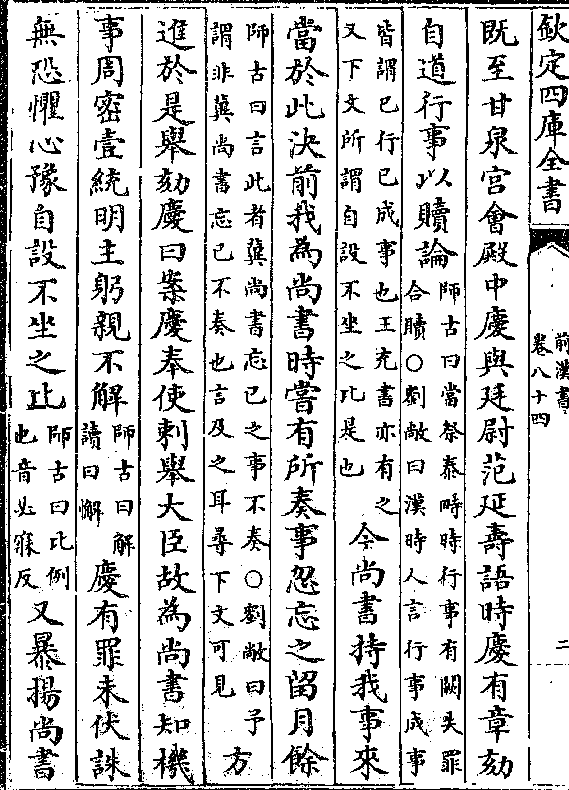 欽定四庫全書
前漢書
卷八十四
二
既至甘泉宮會殿中慶與廷尉范延壽語時慶有章劾
自道行事以贖論師古曰當祭泰畤時行事有闕失罪
合贖○劉敞曰漢時人言行事成事
皆謂已行已成事也王充書亦有之
又下文所謂自設不坐之比是也今尚書持我事來
當於此決前我為尚書時嘗有所奏事忽忘之留月餘
師古曰言此者冀尚書忘已之事不奏○劉敞曰予
謂非冀尚書忘已不奏也言及之耳尋下文可見方
進於是舉劾慶曰案慶奉使刺舉大臣故為尚書知機
事周密壹統明主躬親不解師古曰解
讀曰懈慶有罪未伏誅
無恐懼心豫自設不坐之比師古曰比例
也音必寐反又暴揚尚書